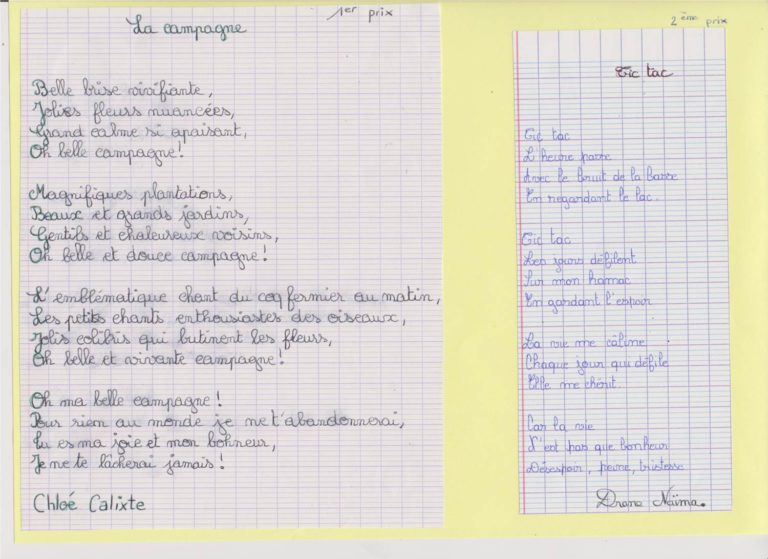 1er prix
La campagne
Belle brise vivifiante,
Jolies fleurs nuancées,
Grand calme si apaisant,
Oh belle campagne !
Magnifiques plantations,
Beaux et grands jardins,
Gentils et chaleureux voisins,
Oh belle et douce campagne !
L'emblématique chant du coq fermier au matin,
Les petits chants enthousiastes des oiseaux,
Jolis colibris qui butinent les fleurs,
Oh belle et vivante campagne !
Oh ma belle campagne !
Pour rien au monde je ne t'abandonnerai,
Tu es ma joie et mon bohneur,
Je ne te lâcherai jamais !
Chloé Calixte
2ème prix
Tic tac
Tic tac
L'heure passe
Avec le bruit de la basse
En regardant le lac.
Tic tac
Les jours défilent
Sur mon hamac
En gardant l'espoir
La vie me câline
Chaque jour qui défile
Elle me chérit.
Car la vie
N'est pas que bonheur
Désespoir, peine, tristesse
Drane Naïma.